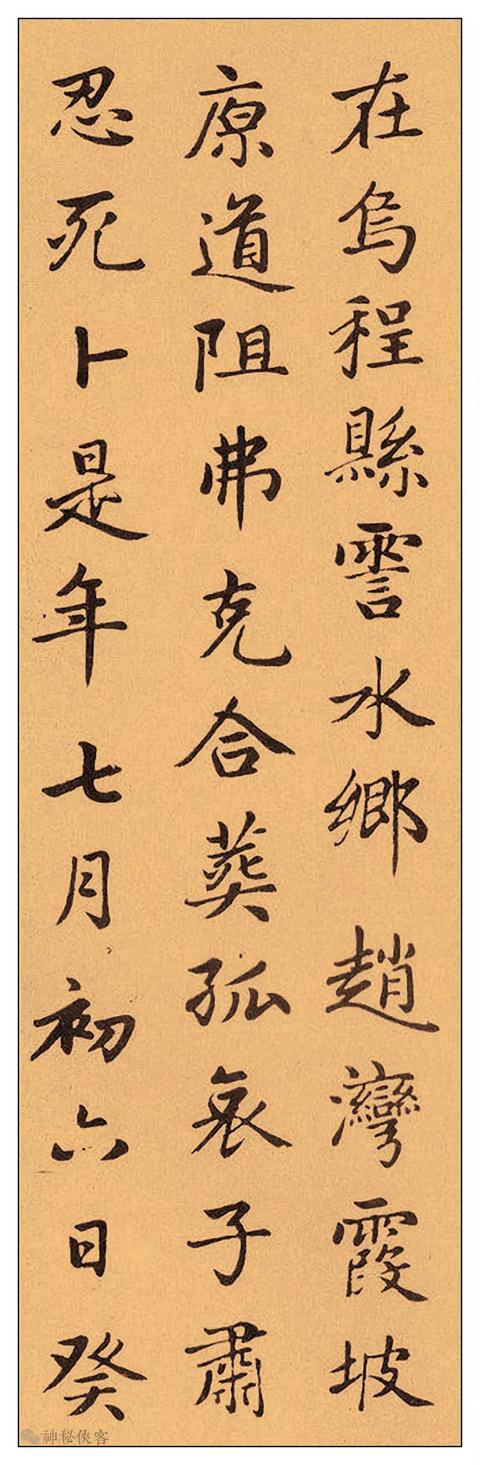 在烏程縣霅水鄉趙灣霞坡
原道阻弗克合葬孤哀子肅
忍死卜是年七月初六日癸
神秘俠客